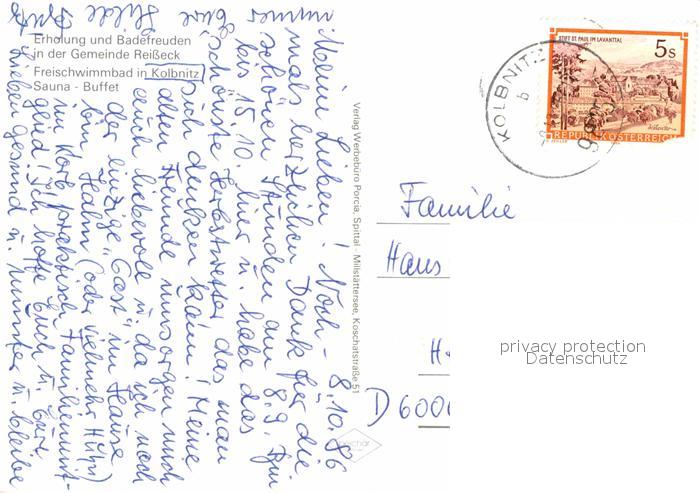 Erholung und Badefreuden
in der Gemeinde Reißeck
Freischwimmbad in Kolbnitz
Sauna - Buffet
Verlag Werbebüro Porcia, Spittal - Millstättersee, Koschatstraße 51
8.10.86
Meine Lieben! Noch-
mals herzlichen Dank für die
schönen Stunden am 8.9. Bin
bis 15.10. hier u. habe das
schönste Herbstwetter das man
sich denken kann! Meine
alten Freunde umsorgen mich
auch liebevoll u. da ich noch
der einzige "Gast" im Hause
bin Hahn (oder vielmehr Huhn)
im Korb praktisch Familienmit-
glied. Ich hoffe Euch u. Eure
Lieben gesund u. munter u. bleibe
immer
Eure
Hilde
STIFT ST. PAUL IM LAVANTTAL
5 S
REPUBLIK ÖSTERREICH
KOLBNITZ
b
Familie
Hans
H
D 600
privacy protection
Datenschutz